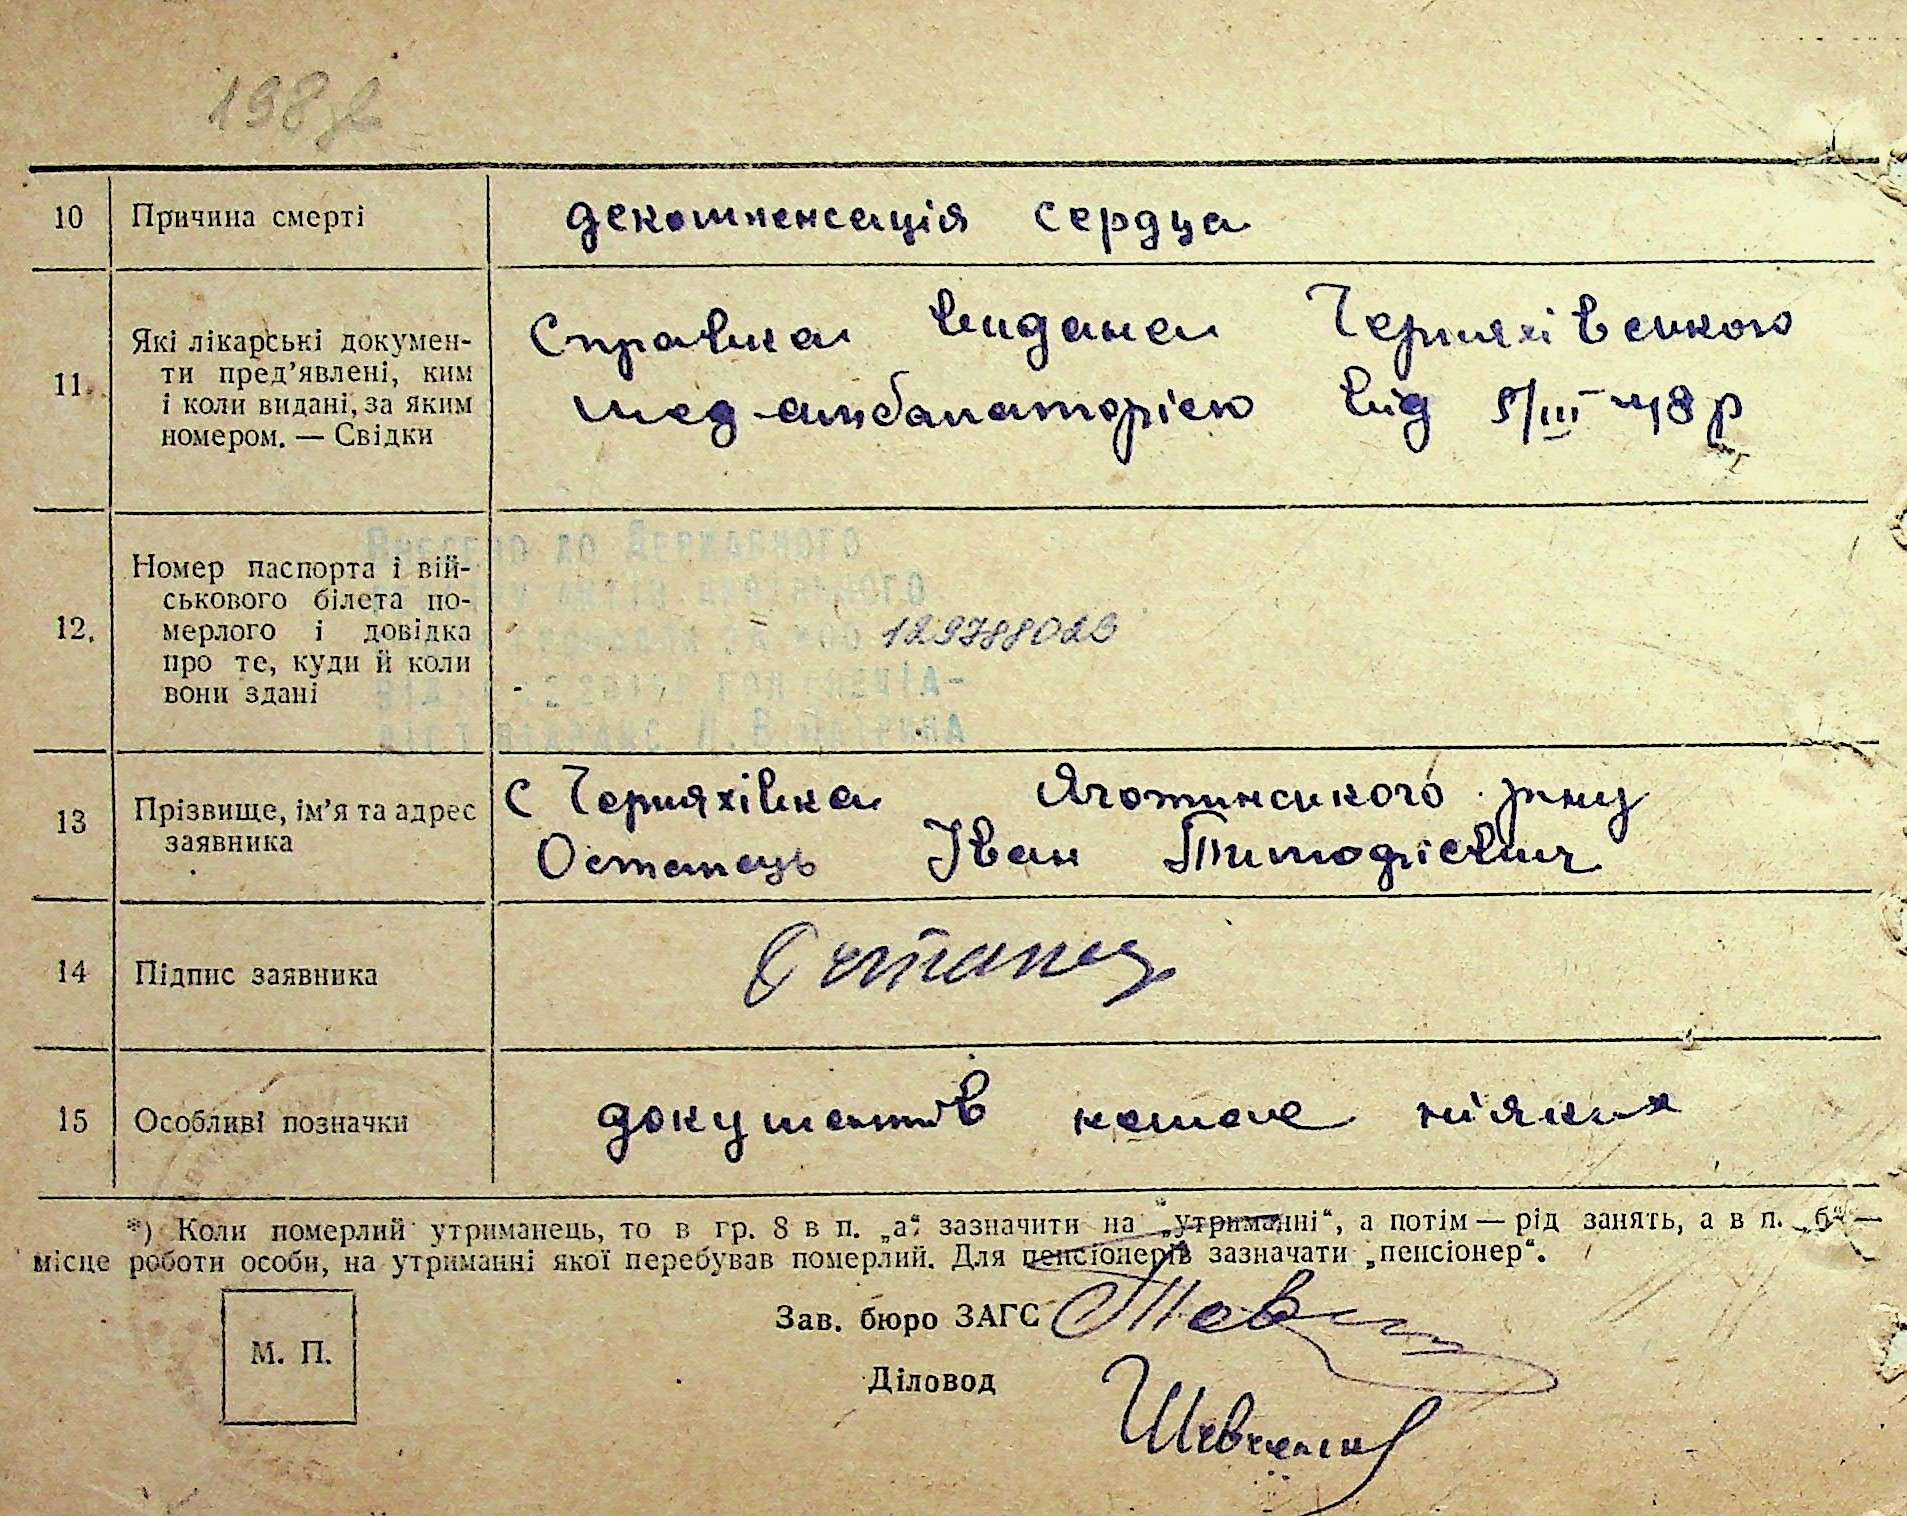 198
10 Причина смерті декомпенсація сердца
11. Які лікарські докумен-
ти пред'явлені, ким
і коли видані, за яким
номером. — Свідки
Справка видана Черняхівською
мед-амбалаторією від 5/III-48 р
12. Номер паспорта і вій-
ськового білета по-
мерлого і довідка
про те, куди й коли
вони здані
до Державного
129788023
13 Прізвище, ім'я та адрес
заявника
с Черняхівка Яготинського р-ну
Остапець Іван Тимофієвич
14 Підпис заявника Остапець
15 Особливі позначки документів немає ніяких
*) Коли померлий утриманець, то в гр. 8 в п. „а“ зазначити на „утриманні“, а потім — рід занять, а в п. „б“ —
місце роботи особи, на утриманні якої перебував померлий. Для пенсіонерів зазначати „пенсіонер“.
Зав. бюро ЗАГС
М. П.
Діловод